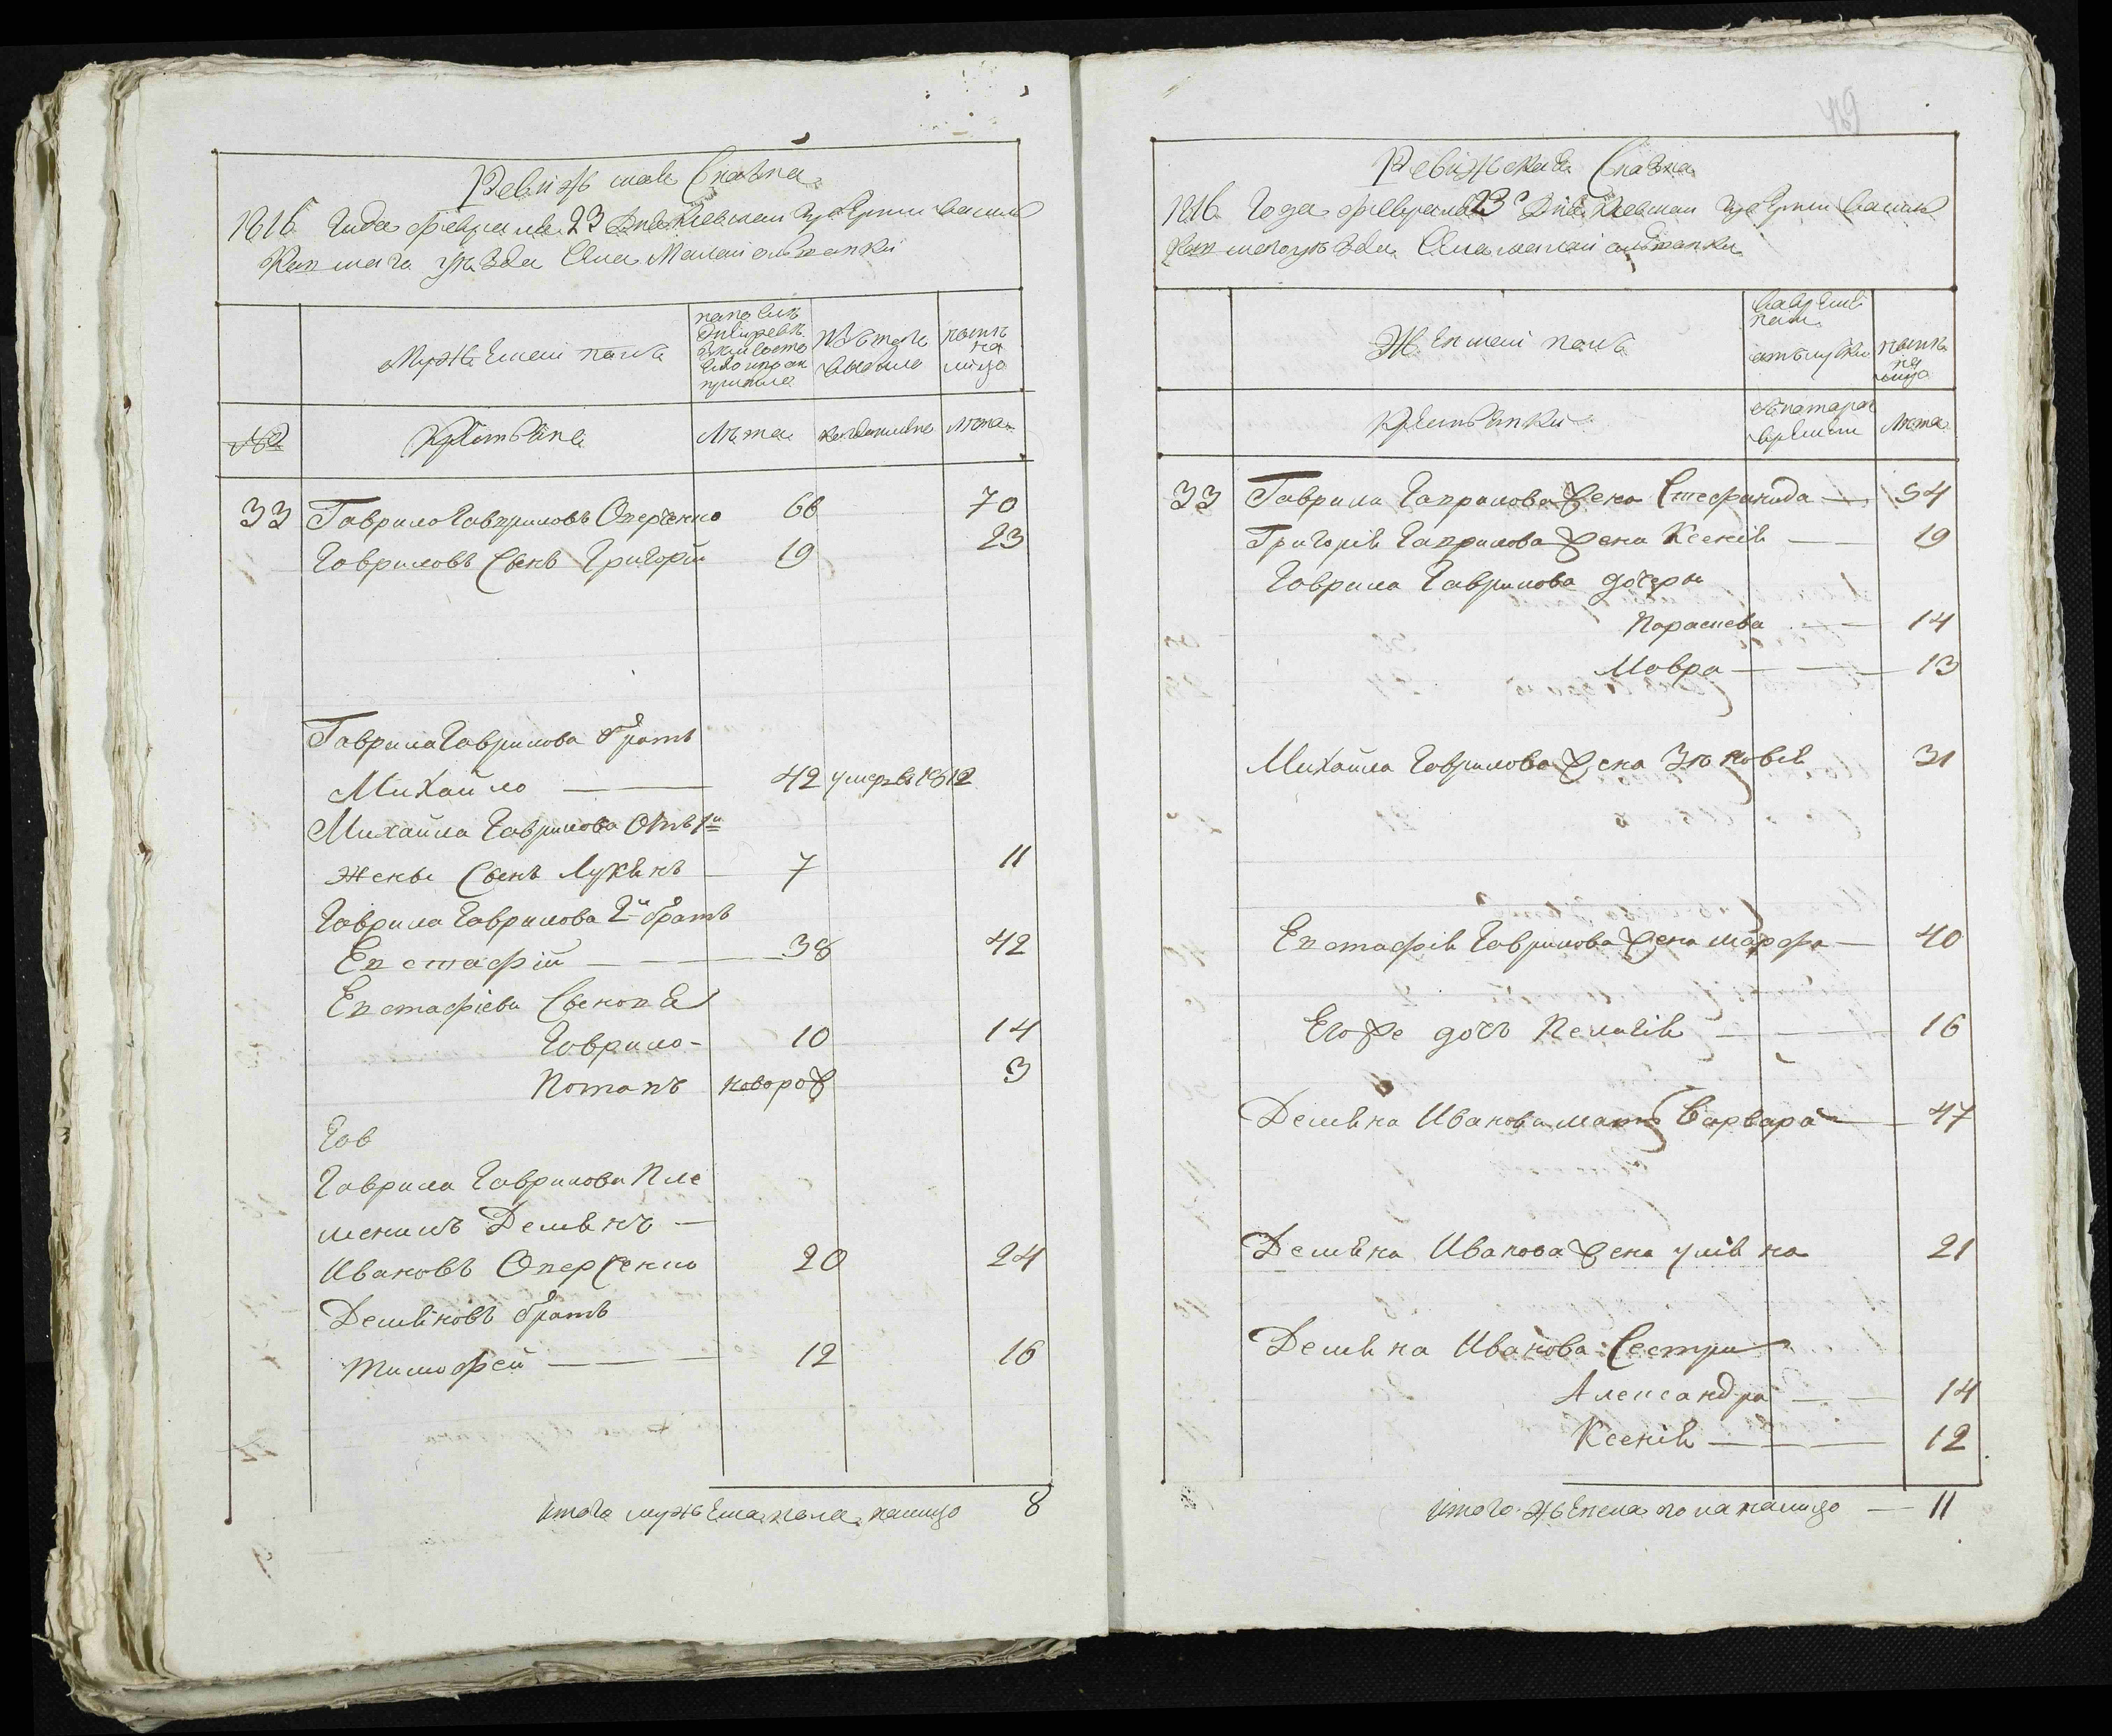 Ревижская Сказка
1816 Года февраля 23 дня Киевскаи губернии васил
Ковскаго уезда Села Малаи
Мужескаи полъ
ныне
на
лицо
Крестьяне
Лѣта
Лѣта
33 Гаврило Гавриловъ Оверченко 66 70
Гавриловъ Сынъ Григорій 19 23
Гаврила Гаврилова братъ
Михайло 42 умеръ въ 1812
Михайла Гаврилова Отъ 1й
жены Сынъ Лукянъ 7 11
Гаврила Гаврилова 2й братъ
Евстафій 38 42
Евстафіевы Сыновья
Гаврило 10 14
Потапъ новорож 3
Гав
Гаврила Гаврилова Пле
меникъ Демянъ
Ивановъ Оверченко 20 24
Демяновъ братъ
тимофей 12 16
итого мужеска пола налицо 8
49
Ревижская Сказка
1816 Года февраля 23 Дня Киевскаи губернии васил
ковскаго уезда Села малаи
Женскаи полъ
во временнаи
отлучки
ныне
на
лицо
Крестьянки
Лѣта
33 Гаврила Гаврилова жена Стефанида 54
Григорія Гаврилова жена Ксенія 19
Гаврила Гаврилова дочеры
Параскева 14
Мавра 13
Михайла Гаврилова жена Зѣновія 31
Евстафія Гаврилова жена марфа 40
Его же дочь Пелагія 16
Демяна Иванова мать Варвара 47
Демяна Иванова жена улiяна 21
Демяна Иванова Сестры
Александра 14
Ксенія 12
итого женска пола налицо 11